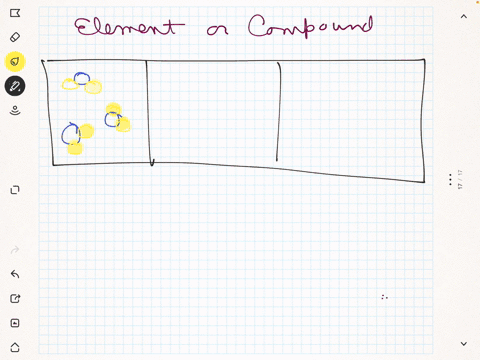 Element or Compound
17 / 17